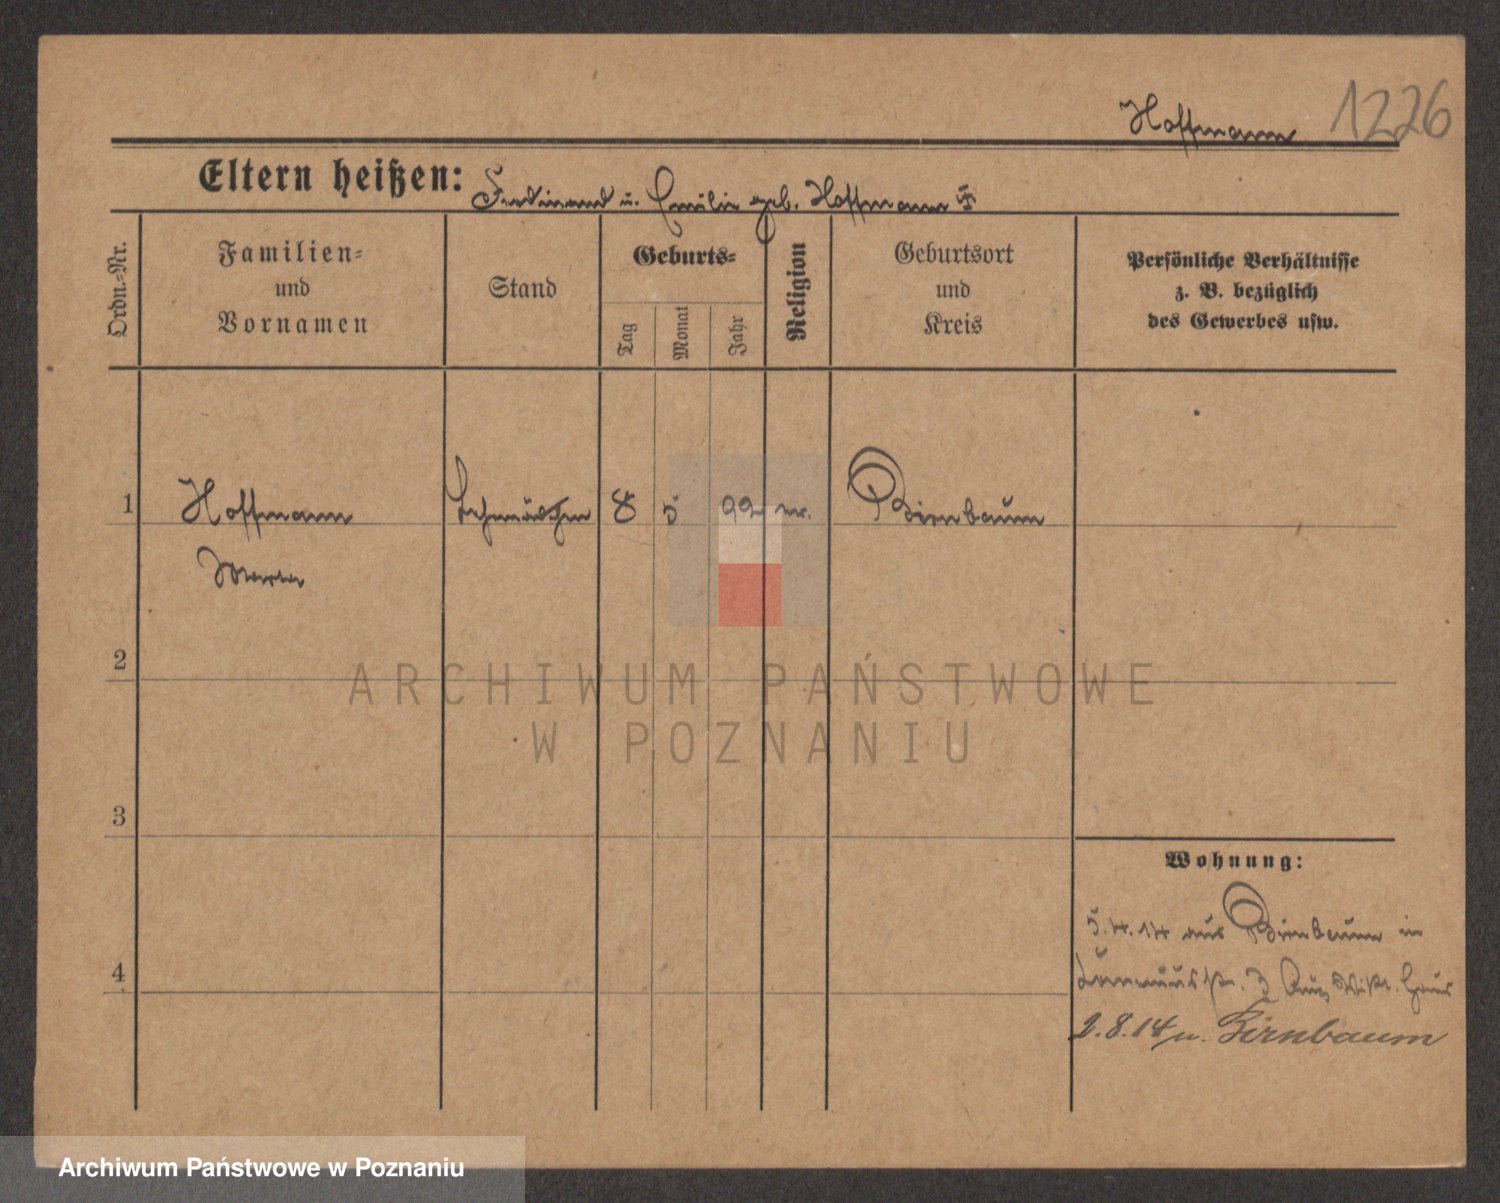 Hoffmann 1226
Eltern heißen: Ferdinand u. Emilie geb. Hoffmann
Ordn.-Nr.
Familien-
und
Vornamen
Stand
Geburts-
Tag
Monat
Jahr
Religion
Geburtsort
und
Kreis
Persönliche Verhältnisse
z. B. bezüglich
des Gewerbes usw.
1 Hoffmann Lehrmädchen 8 5 99 ev. Birnbaum
2
ARCHIWUM PAŃSTWOWE
W POZNANIU
3
4
Wohnung:
5.4.14 aus Birnbaum in
2.8.14 n. Birnbaum
Archiwum Państwowe w Poznaniu